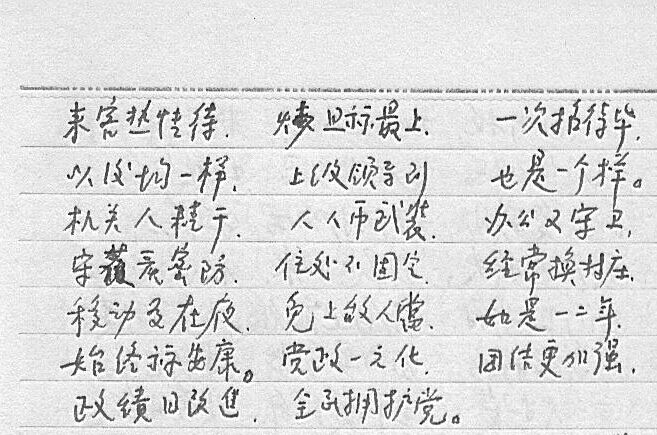 来客热情待. 烧旦标最上. 一次招待毕.
以后均一样. 上级领导到 也是一个样。
机关人精干. 人人币武装. 办公又守卫,
守蔽严密防. 住处不固定. 经常换村庄.
移动多在夜. 免上敌人当. 如是一二年.
始终称安康。党政一元化. 团结更加强.
政绩日改进. 全民拥护党。